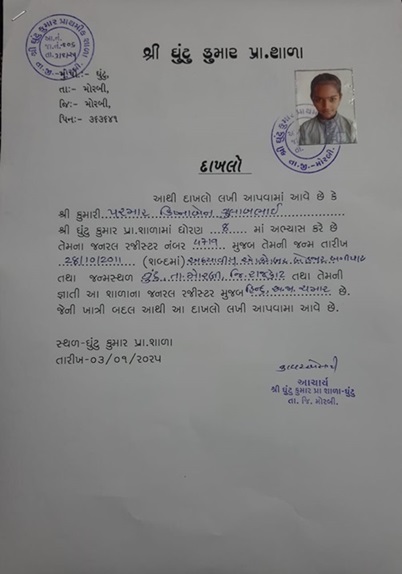 શ્રી ઘુંટુ કુમાર પ્રાથમીક શાળા
તા.જી.મોરબી.
શ્રી ઘુંટુ કુમાર પ્રા.શાળા
મુ.પો:- ઘુંટુ,
તા:- મોરબી,
જિ:- મોરબી,
પિન:- ૩૬૩૬૪૧
શ્રી ઘુંટુ કુમાર
તા.જી.-મોરબી.
દાખલો
આથી દાખલો લખી આપવામાં આવે છે કે
શ્રી કુમારી પરમાર ગુલાબભાઈ
શ્રી ઘુંટુ કુમાર પ્રા.શાળામાં ધોરણ ૮ માં અભ્યાસ કરે છે
તેમના જનરલ રજીસ્ટર નંબર ૫૭૧૧ મુજબ તેમની જન્મ તારીખ
૨૮/૧૦/૨૦૧૧ (શબ્દમાં) અઠયાવીસ ઓક્ટોબર બે હજાર અગીયાર
તથા જન્મસ્થળ ઘુંટુ, તા.મોરબી, જિ.રાજકોટ તથા તેમની
જ્ઞાતી આ શાળાના જનરલ રજીસ્ટર મુજબ હિન્દુ અ.જા. ચમાર છે.
જેની ખાત્રી બદલ આથી આ દાખલો લખી આપવામા આવે છે.
સ્થળ-ઘુંટુ કુમાર પ્રા.શાળા
તારીખ-૦૩/૦૧/૨૦૨૫
આચાર્ય
શ્રી ઘુંટુ કુમાર પ્રા શાળા-ઘુંટુ
તા. જિ. મોરબી.